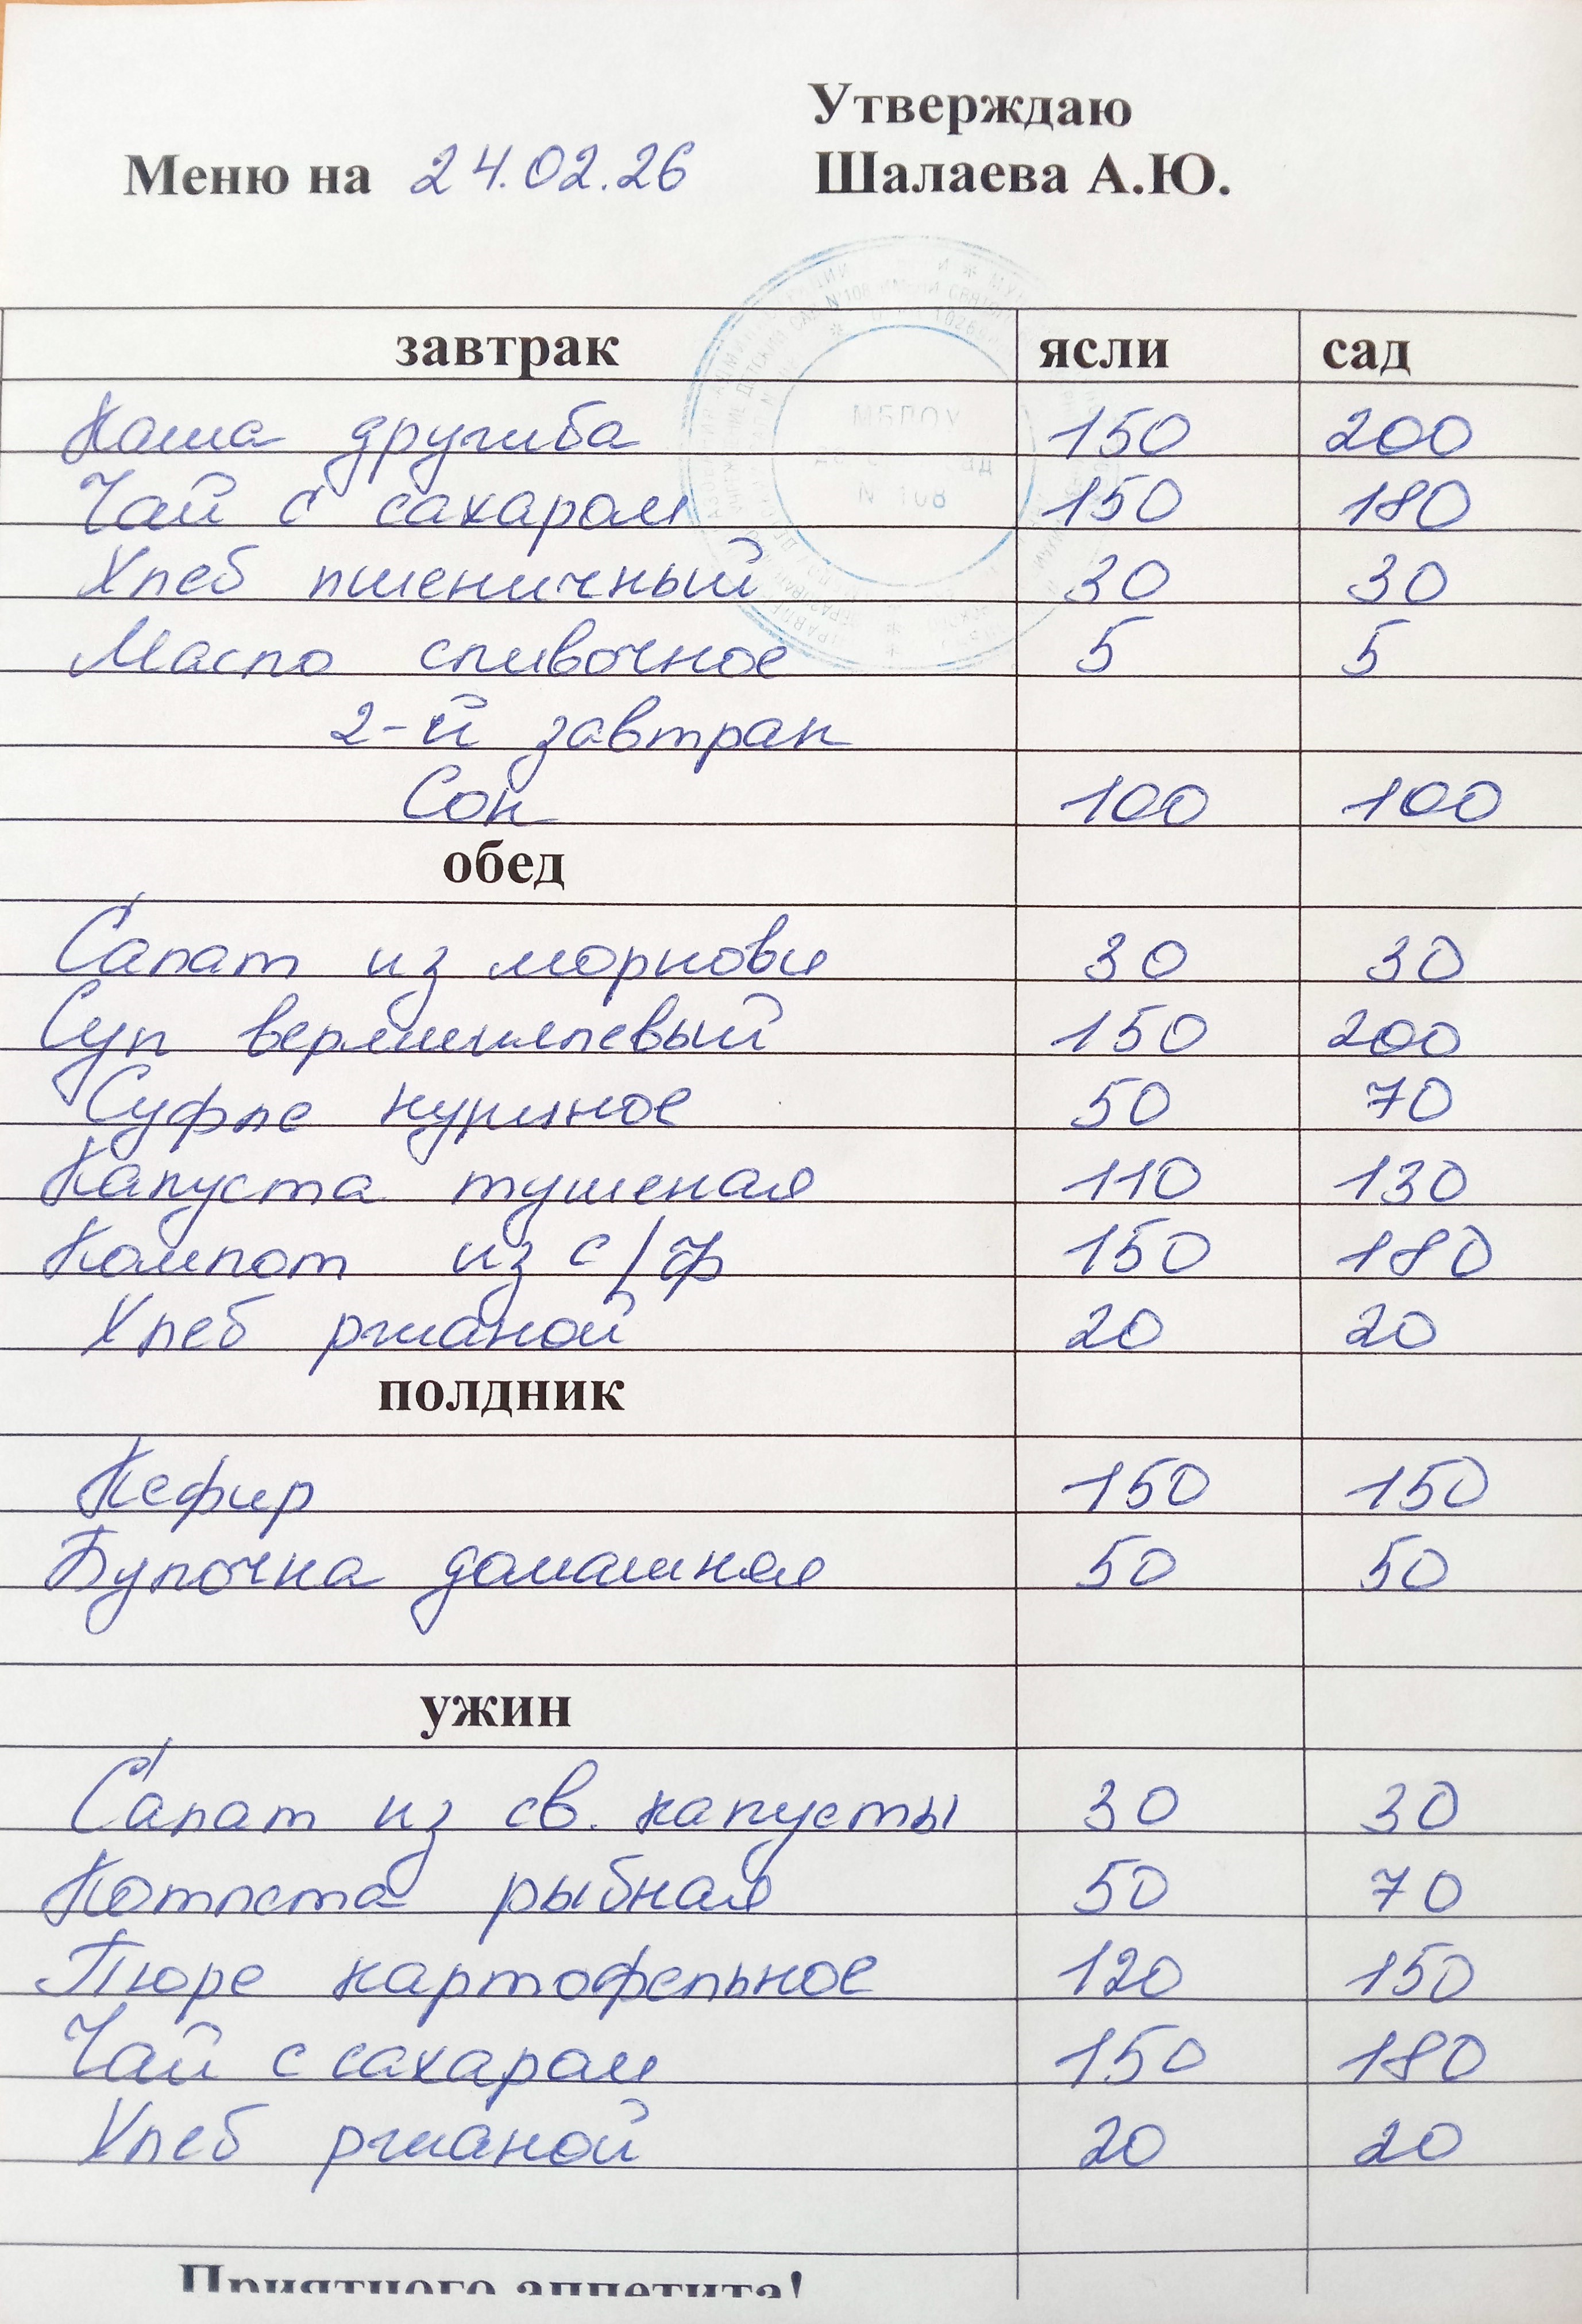 Утверждаю
Меню на 24.02.26 Шалаева А.Ю.
завтрак ясли сад
Каша дружба 150 200
Чай с сахаром 150 180
Хлеб пшеничный 30 30
Масло сливочное 5 5
2-й завтрак
Сок 100 100
обед
Салат из моркови 30 30
Суп вермишелевый 150 200
Суфле куриное 50 70
Капуста тушеная 110 130
Компот из с/ф 150 180
Хлеб ржаной 20 20
полдник
Кефир 150 150
Булочка домашняя 50 50
ужин
Салат из св. капусты 30 30
Котлета рыбная 50 70
Пюре картофельное 120 150
Чай с сахаром 150 180
Хлеб ржаной 20 20
Приятного аппетита!
МБДОУ
N 108